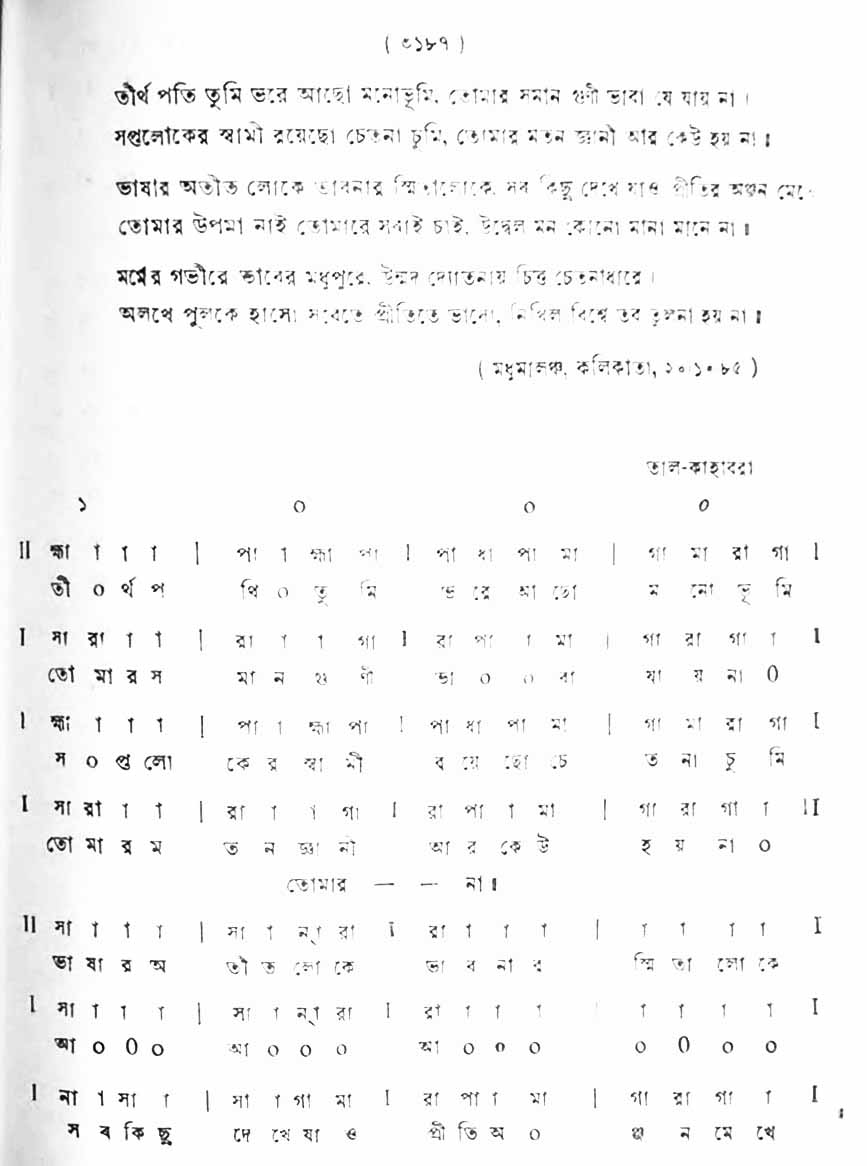 ( ৩১৮৭ )
তীর্থ পতি তুমি ভরে আছো মনোভূমি, তোমার সমান গুণী ভাবা যে যায় না ।
সপ্তলোকের স্বামী রয়েছো চেতনা চুমি, তোমার মতন জ্ঞানী আর কেউ হয় না ॥
ভাষার অতীত লোকে ভাবনার স্মিতালোকে, সব কিছু দেখে যাও প্রীতির অঞ্জন মেখে
তোমার উপমা নাই তোমারে সবাই চাই, উদ্বেল মন কোনো মানা মানে না ॥
মর্মের গভীরে ভাবের মধুপুরে, উন্মদ দ্যোতনায় চিত্ত চেতনাধারে ।
অলখে পুলকে হাসো সবেতে প্রীতিতে ভাসো, নিখিল বিশ্বে তব তুলনা হয় না ॥
( মধুমালঞ্চ, কলিকাতা, ২০।১০।৮৫ )
তাল-কাহারবা
১ ০ ০ ০
II হ্মা া া া | পা া হ্মা পা I পা ধা পা মা | গা মা রা গা I
তী ০ র্থ প তি ০ তু মি ভ রে আ ছো ম নো ভূ মি
I সা রা া া | রা া া গা I রা পা া মা । গা রা গা া I
তো মা র স মা ন গু ণী ভা ০ ০ বা যা য় না 0
I হ্মা া া া | পা া হ্মা পা I পা ধা পা মা | গা মা রা গা I
স ০ প্ত লো কে র স্বা মী র য়ে ছো চে ত না চু মি
I সা রা া া | রা া া গা I রা পা া মা | গা রা গা া II
তো মা র ম ত ন জ্ঞা নী আ র কে উ হ য় না ০
তোমার — — না॥
II সা া া া | সা া ন্ রা I রা া া া | া া া া I
ভা ষা র অ তী ত লো কে ভা ব না র স্মি তা লো কে
I সা া া া | সা া ন্ রা I রা া া া | া া া া I
আ ০ 0 ০ আ ০ ০ ০ আ ০ ০ ০ ০ 0 ০ ০
I না া সা া | সা া গা মা I রা পা া মা | গা রা গা া I
স ব কি ছু দে খে যা ও প্রী তি অ ০ ঞ্জ ন মে খে